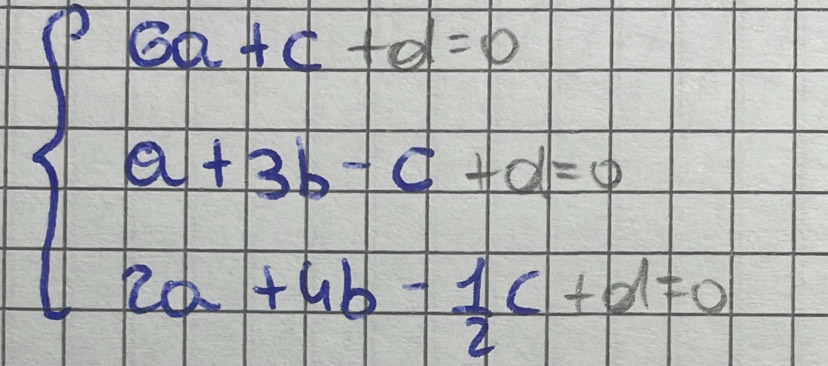 6a + c + d = 0
a + 3b - c + d = 0
2a + 4b - 1/2 c + d = 0